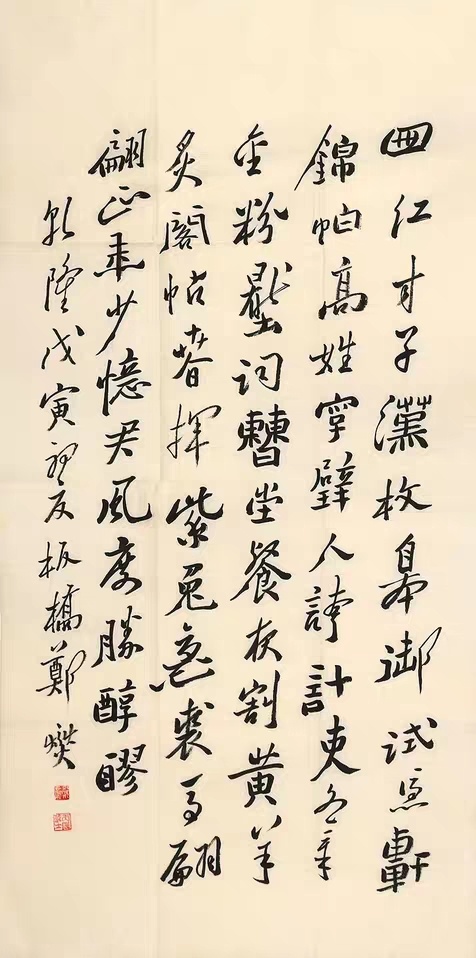 江才子漢枚皋御試軒
錦帕高姓字璧人誇計吏文章
金粉詞曹坐餐秋割黃羊
炙閣帖春揮紫兔毫裘馬翩
翩正年少憶君風度勝醇醪
乾隆戊寅板橋鄭燮